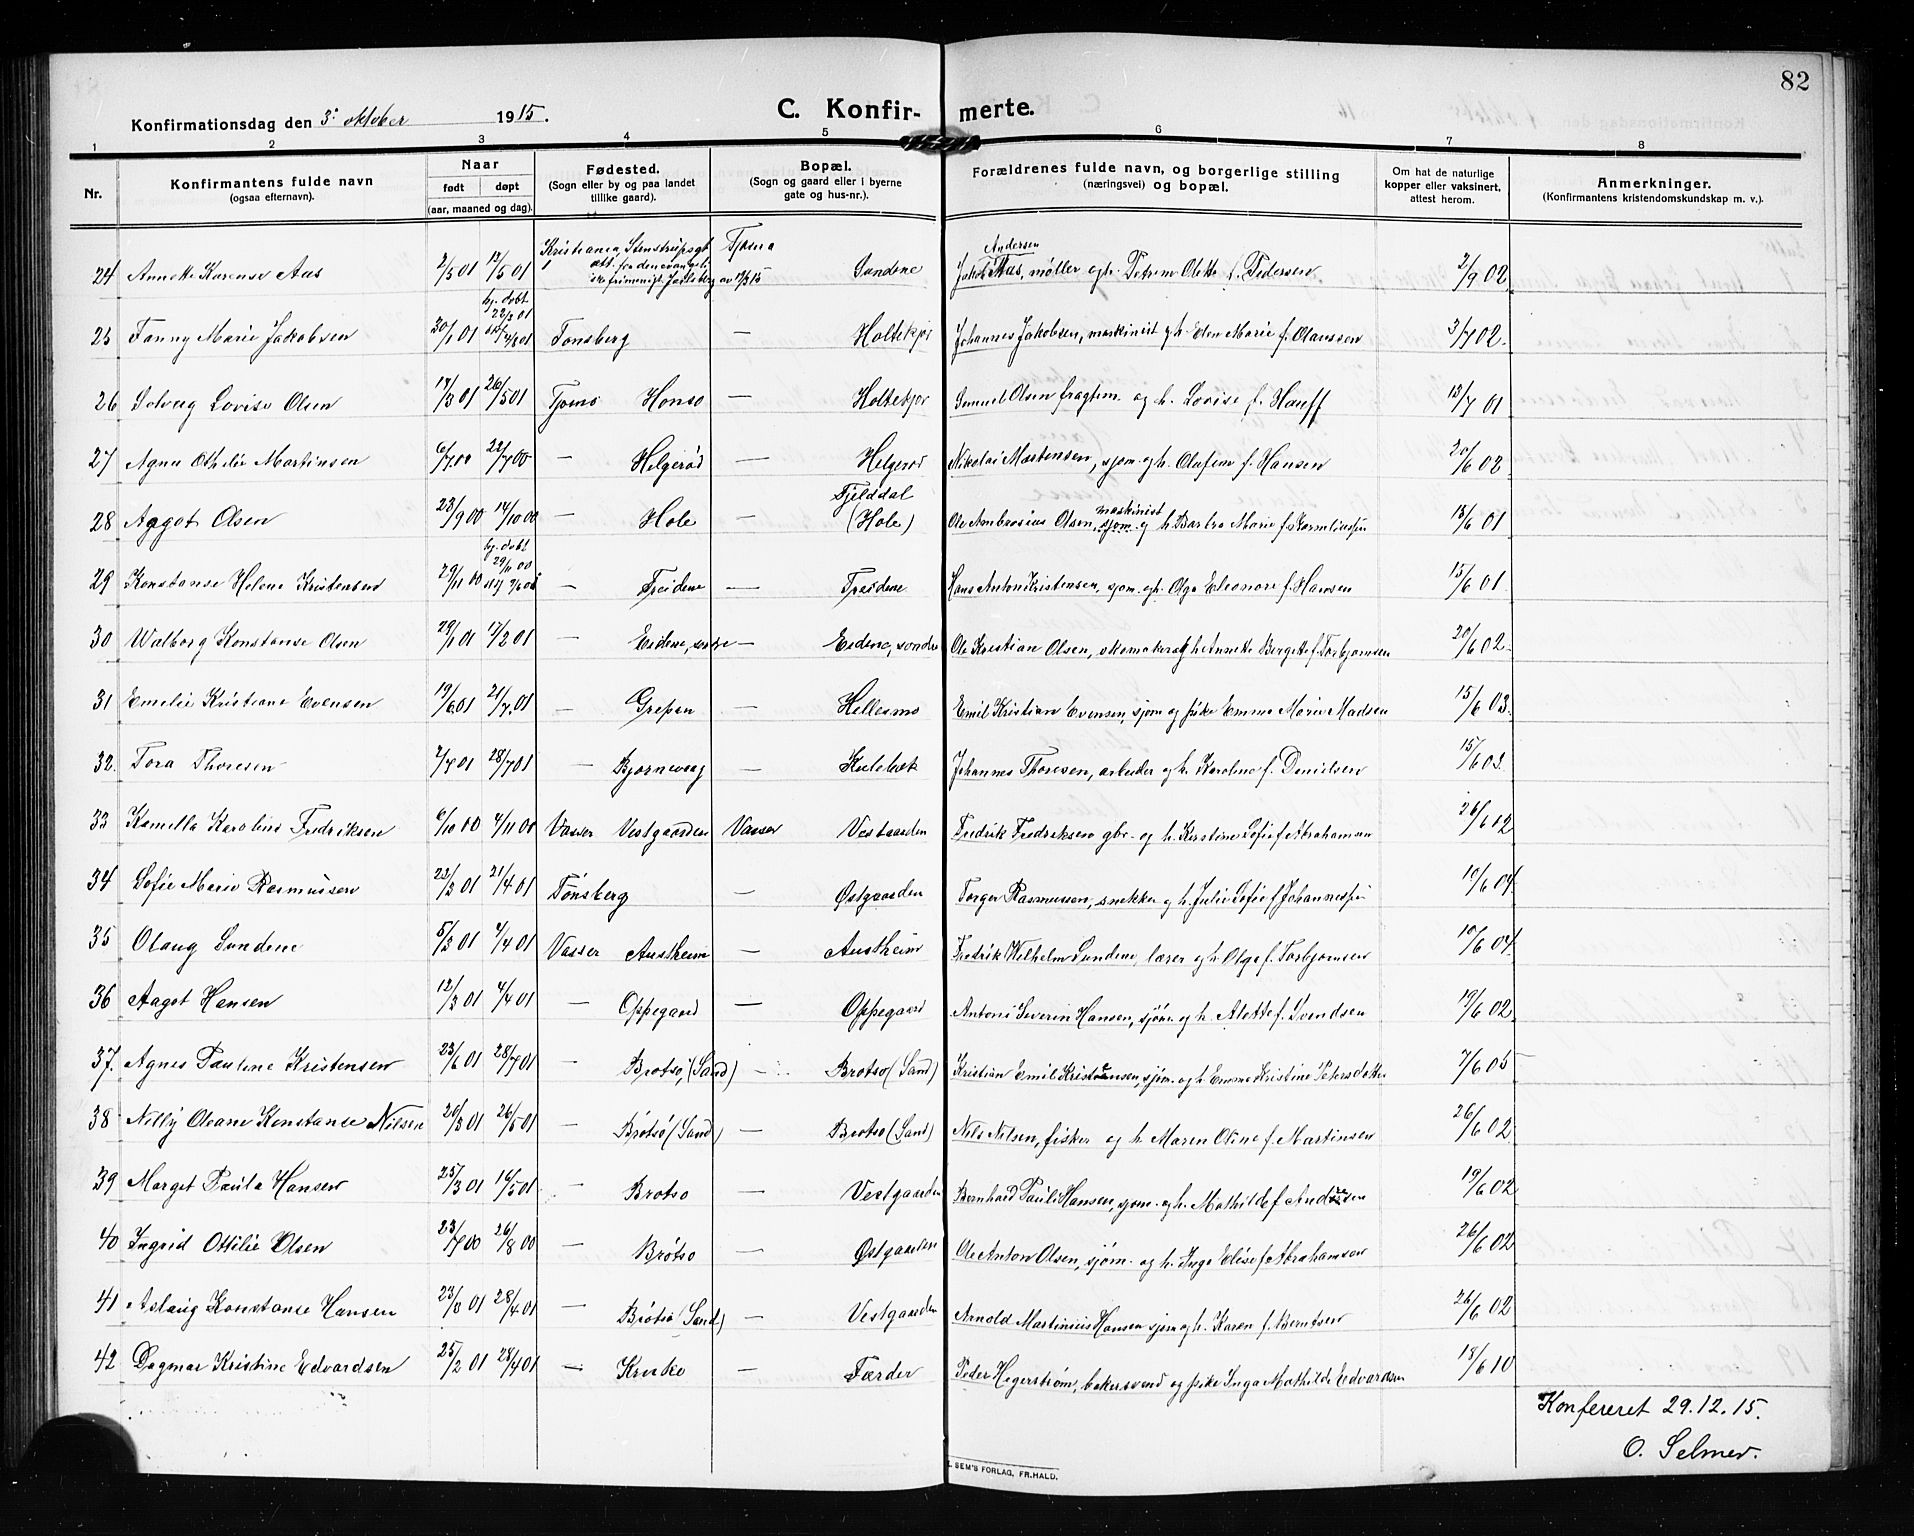 82
Konfirmationsdag den 3' oktober 1915.
C. Konfirmerte.
1 2 3 4 5 6 7 8
Nr. Konfirmantens fulde navn (ogsaa efternavn). Naar født døpt (aar, maaned og dag). Fødested. (Sogn eller by og paa landet tillike gaard). Bopæl. (Sogn og gaard eller i byerne gate og hus-nr.). Forældrenes fulde navn, og borgerlige stilling (næringsvei) og bopæl. Om hat de naturlige kopper eller vaksinert, attest herom. Anmerkninger. (Konfirmantens kristendomskundskap m. v.).
24 Annette Karense Aas 2/5 01 12/5 01 Kristiania Tjømo Sundene Jakob Andersen Aas, møller og h. Petrea Olette f. Pedersen 2/9 02
25 Fanny Marie Jakobsen 30/1 01 hj. døbt 22/3 01 Tønsberg — Holtekjær Johannes Jakobsen, maskinist og h. Elen Marie f. Olaussen 3/7 02
26 Solveig Lovise Olsen 17/3 01 26/5 01 Tjømø Honsø — Holtekjær Samuel Olsen fragtem. og h. Lovise f. Hauff 13/7 01
27 Agnes Othilie Martinsen 6/7 00 22/7 00 — Helgerød — Helgerød Nikolai Martensen, sjøm. og h. Olufine f. Hansen 20/6 02
28 Aagot Olsen 23/9 00 14/10 00 — Hole — Fjelddal (Hole) Ole Ambrosius Olsen, maskinist sjøm. og h. Barbra Marie f. 18/6 01
29 Konstanse Helene Kristensen 29/11 00 hj. døbt 29/11 00 — Treidene — Treidene Hans Anton Kristensen, sjøm. og h. Olga Eleonore f. Hansen 15/6 01
30 Walborg Konstanse Olsen 29/1 01 17/2 01 — Eidene, søndre — Eidene, søndre Ole Kristian Olsen, skomaker og h. Annette Bergette f. Torbjørnsen 20/6 02
31 Emelie Kristiane Evensen 19/6 01 21/7 01 — Grepan — Hellesmo Emil Kristian Evensen, sjøm. og pike Emma Marie Madsen 15/6 03
32. Tora Thoresen 2/7 01 28/7 01 — Bjørnevaag — Kulebæk Johannes Thoresen, arbeider og h. Karoline f. Danielsen 15/6 03
33 Kamilla Karoline Fredriksen 6/10 00 4/11 00 Vasser Vestgaarden Vasser Vestgaarden Fredrik Fredriksen gbr. og h. Kirstine Sofie f. Abrahamsen 26/6 12
34 Sofie Marie Rasmussen 22/3 01 21/4 01 Tønsberg — Østgaarden Torger Rasmussen, snekker og h. Julie Sofie f. Johannessen 10/6 04
35 Olaug Sundene 5/3 01 4/4 01 Vasser Austheim — Austheim Fredrik Wilhelm Sundene, lærer og h. Olga f. Torbjørnsen 10/6 04
36 Aagot Hansen 12/3 01 4/4 01 — Oppegaard — Oppegaard Antoni Severin Hansen, sjøm. og h. Alette f. Svendsen 19/6 02
37. Agnes Pauline Kristensen 23/6 01 28/7 01 — Brøtsø, (Sand) — Brøtsø (Sand) Kristian Emil Kristensen, sjøm. og h. Emma Kristine Petersdatter 7/6 05
38 Nelly Oleane Konstanse Nilsen 20/3 01 26/5 01 — Brøtsø (Sand) — Brøtsø (Sand) Nils Nilsen, fisker og h. Maren Oline f. Martinsen 26/6 02
39 Marget Paula Hansen 25/3 01 16/5 01 — Brøtsø — Vestgaarden Bernhard Pauli Hansen, sjøm. og h. Mathilde f. Andersen 19/6 02
40 Ingrid Ottilie Olsen 23/7 00 26/8 00 — Brøtsø — Østgaarden Ole Anton Olsen, sjøm. og h. Inga Elise f. Abrahamsen 26/6 02
41 Aslaug Konstanse Hansen 23/3 01 28/4 01 — Brøtsø (Sand) — Vestgaarden Arnold Martinius Hansen sjøm og h. Karen f. Berntsen 26/6 02
42 Dagmar Kristine Edvardsen 25/2 01 28/4 01 — Kruke — Færder Peder Hegerstrøm, bakersvend og pike Inga Mathilde Edvardsen 18/6 10
Konfereret 29.12.15.
O. Selmer.
SEM'S FORLAG, FR.HALD.